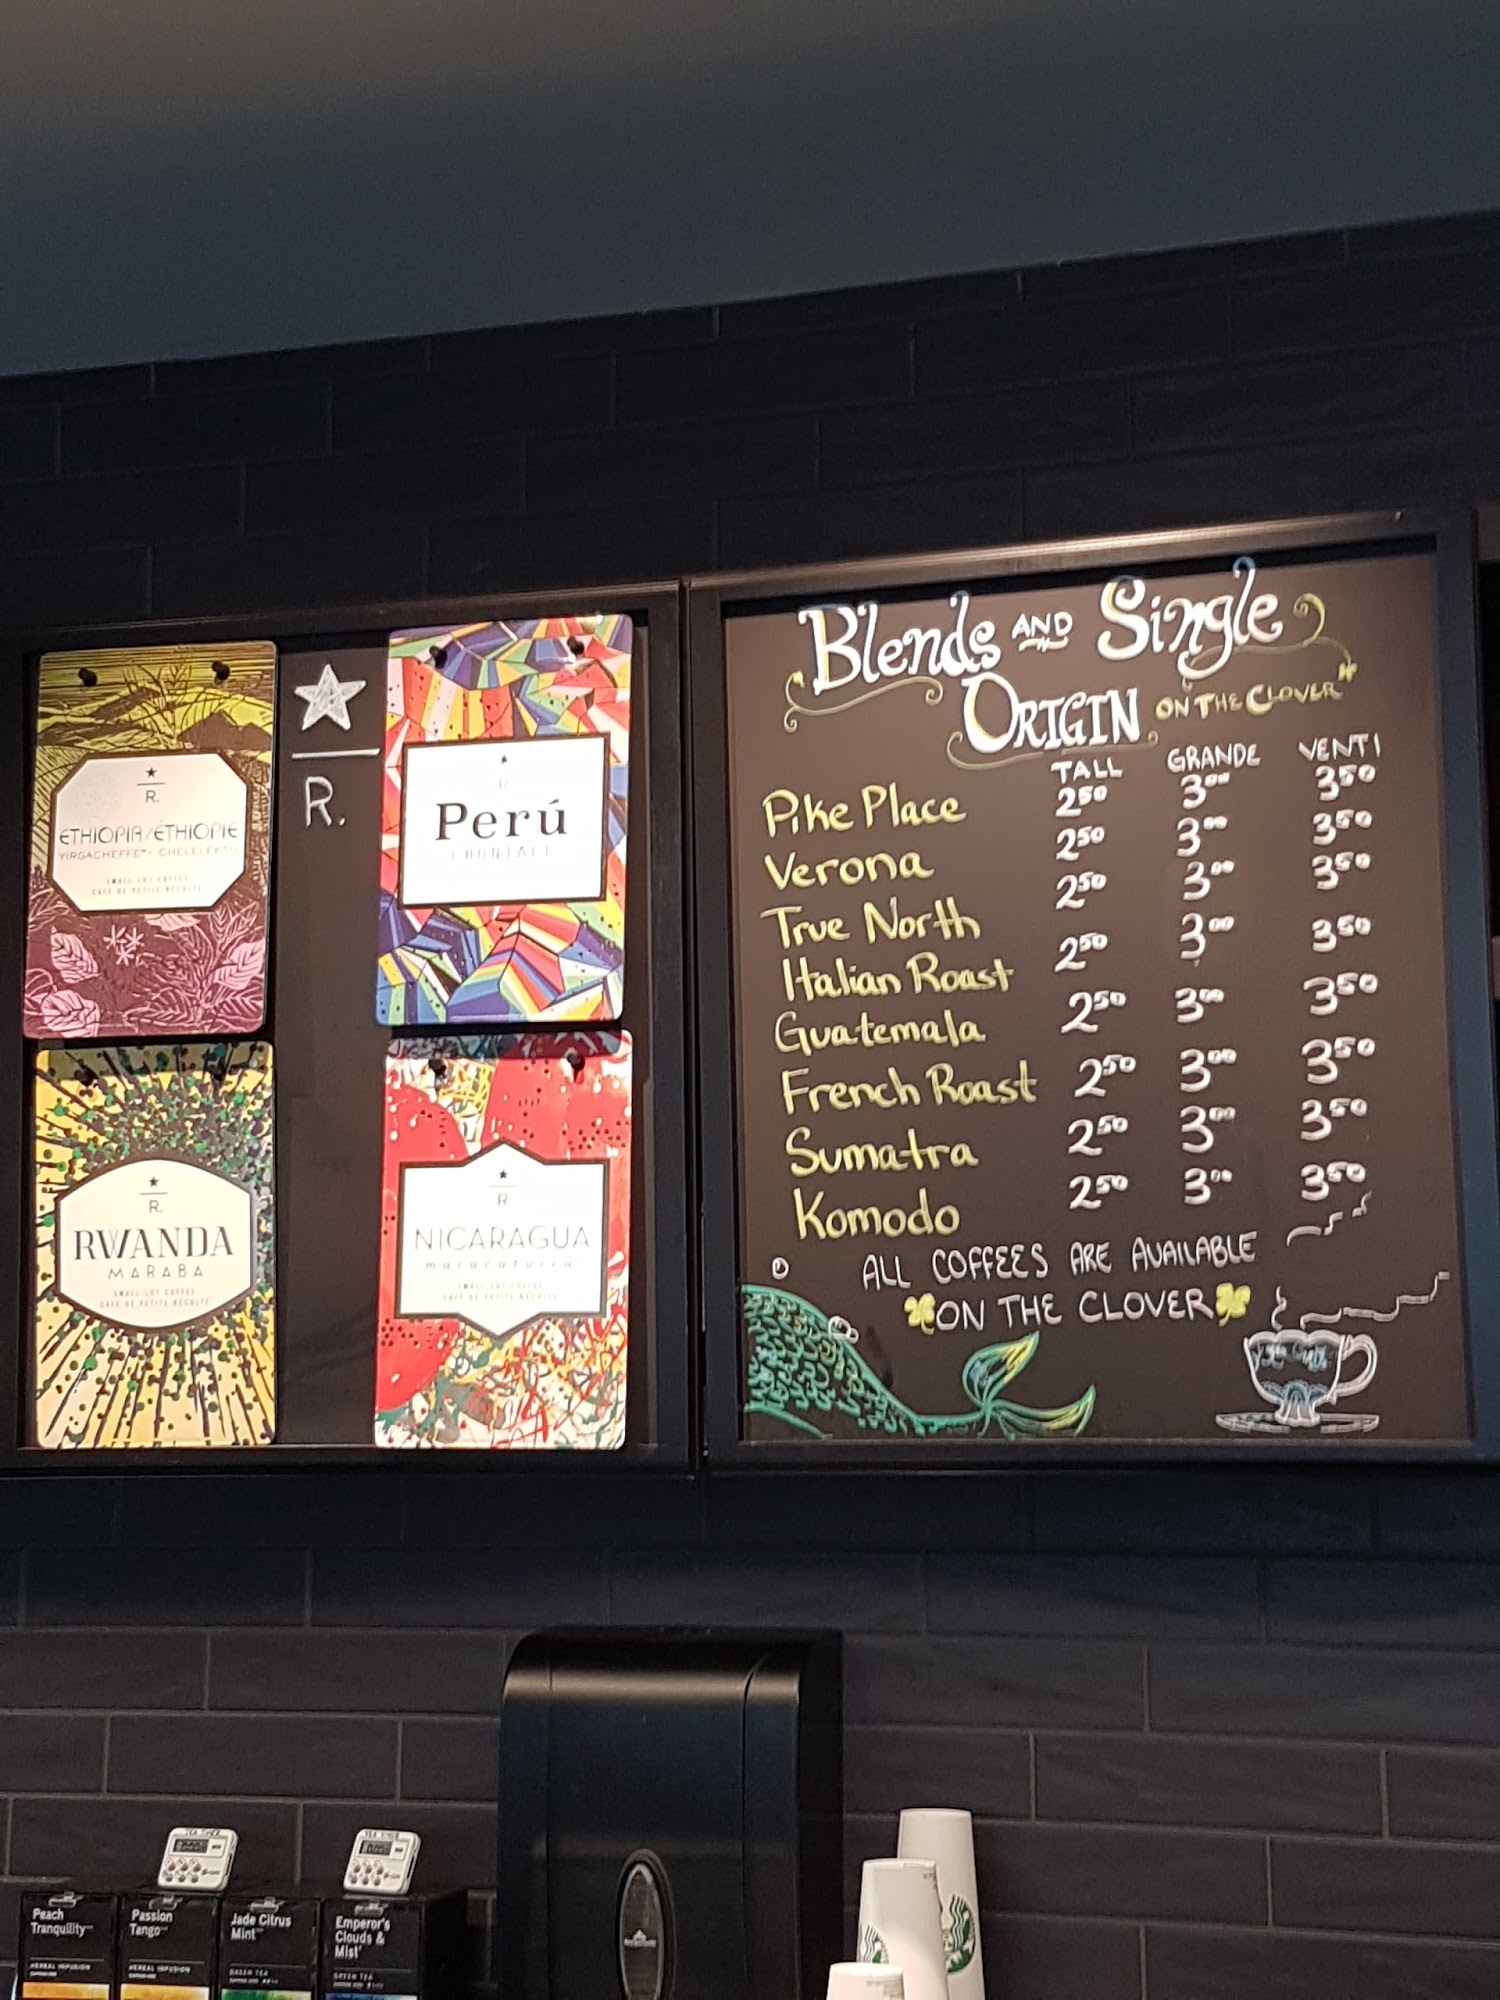 R.
ETHIOPIA/ÉTHIOPIE
YIRGACHEFFE™ CHELELEKTU
SMALL-LOT COFFEE
CAFÉ DE PETITE RÉCOLTE
R.
R
Perú
CHONTALÍ
R.
RWANDA
MARABA
SMALL-LOT COFFEE
CAFÉ DE PETITE RÉCOLTE
R
NICARAGUA
maracaturra
SMALL-LOT COFFEE
CAFÉ DE PETITE RÉCOLTE
Blends AND Single
ORIGIN ON THE CLOVER
TALL GRANDE VENTI
Pike Place 2⁵⁰ 3⁰⁰ 3⁵⁰
Verona 2⁵⁰ 3⁰⁰ 3⁵⁰
True North 2⁵⁰ 3⁰⁰ 3⁵⁰
Italian Roast 2⁵⁰ 3⁰⁰ 3⁵⁰
Guatemala 2⁵⁰ 3⁰⁰ 3⁵⁰
French Roast 2⁵⁰ 3⁰⁰ 3⁵⁰
Sumatra 2⁵⁰ 3⁰⁰ 3⁵⁰
Komodo 2⁵⁰ 3⁰⁰ 3⁵⁰
ALL COFFEES ARE AVAILABLE
ON THE CLOVER
TEA TIMER
TEA TIMER
Peach
Tranquility™
HERBAL INFUSION
Passion
Tango™
HERBAL INFUSION
Jade Citrus
Mint™
GREEN TEA
Emperor's
Clouds &
Mist®
GREEN TEA